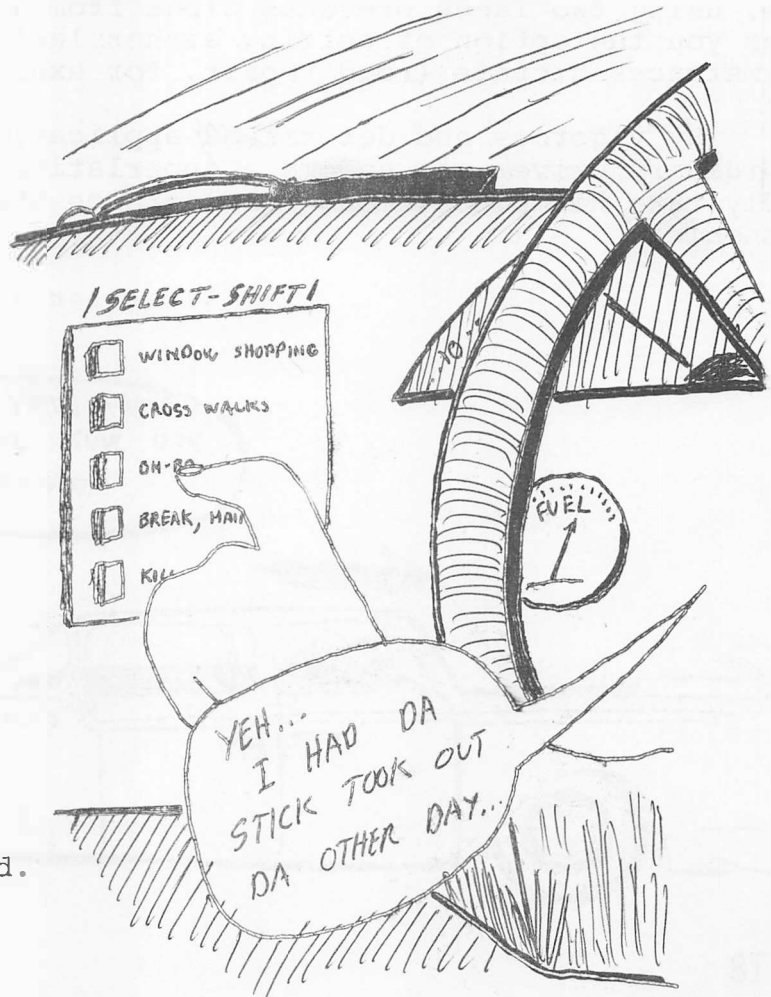 /SELECT-SHIFT/
WINDOW SHOPPING
CROSS WALKS
BREAK,
FUEL
YEH...
I HAD DA
STICK TOOK OUT
DA OTHER DAY...
d.